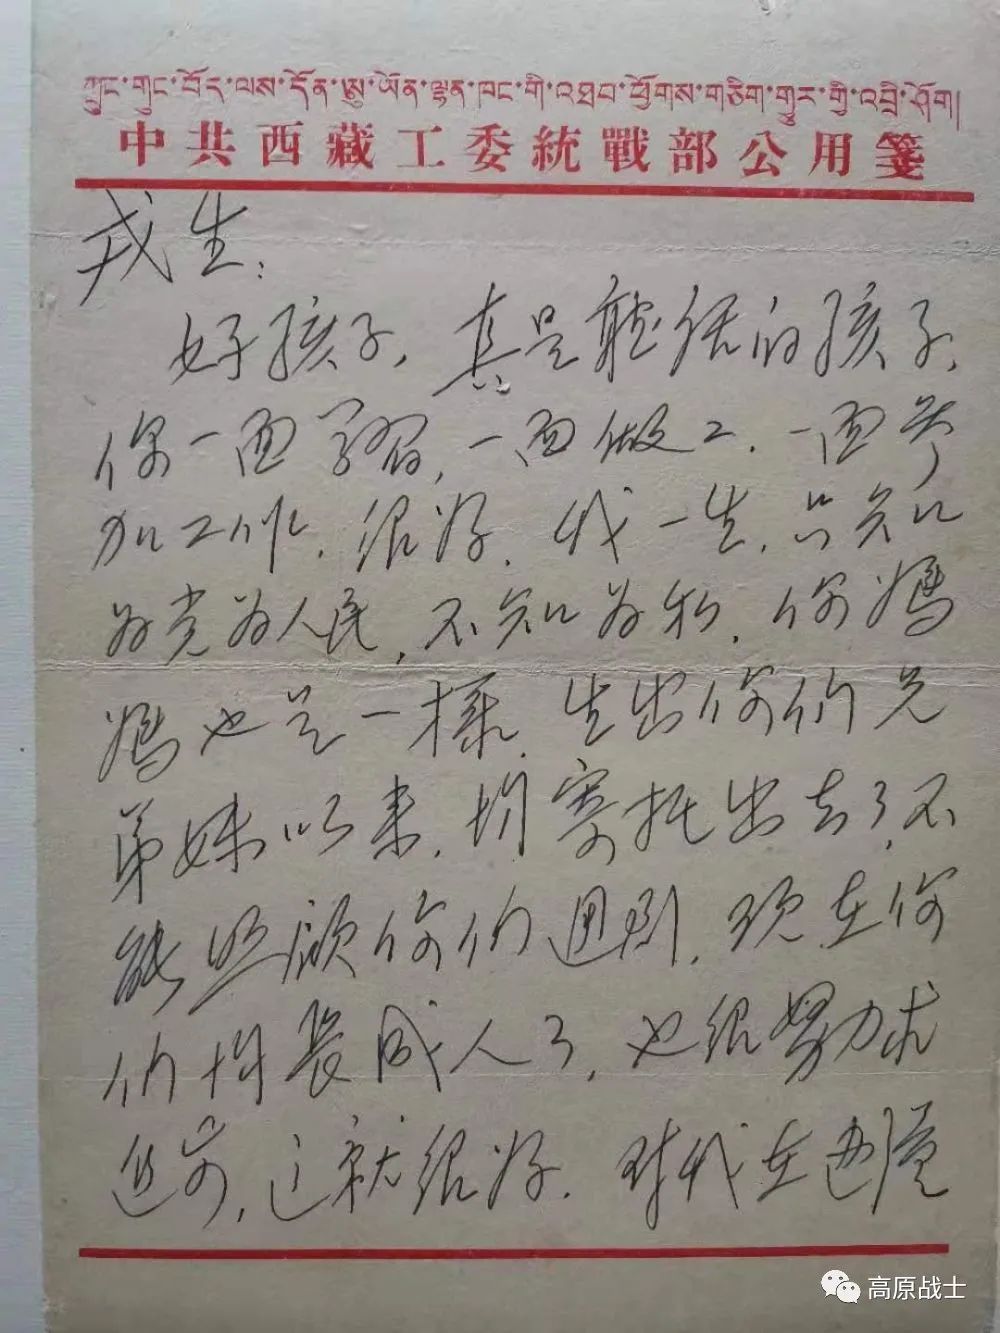 ཀྲུང་གུང་བོད་ལས་དོན་ཨུ་ཡོན་ལྷན་ཁང་གི་འཐབ་ཕྱོགས་གཅིག་གྱུར་གྱི་འབྲི་ཤོག།
中共西藏工委統戰部公用箋
戎生：
好孩子，真是聽话的孩子，
你一面学習，一面做工，一面参
加工作，很好，我一生，只知
为党为人民，不知为私，你媽
媽也是一樣，生出你们兄
弟妹以来，均寄托出去了，不
能照顾你们周到，现在你
们均長成人了，也很努力求
进步，这就很好，对我在边疆
高原战士